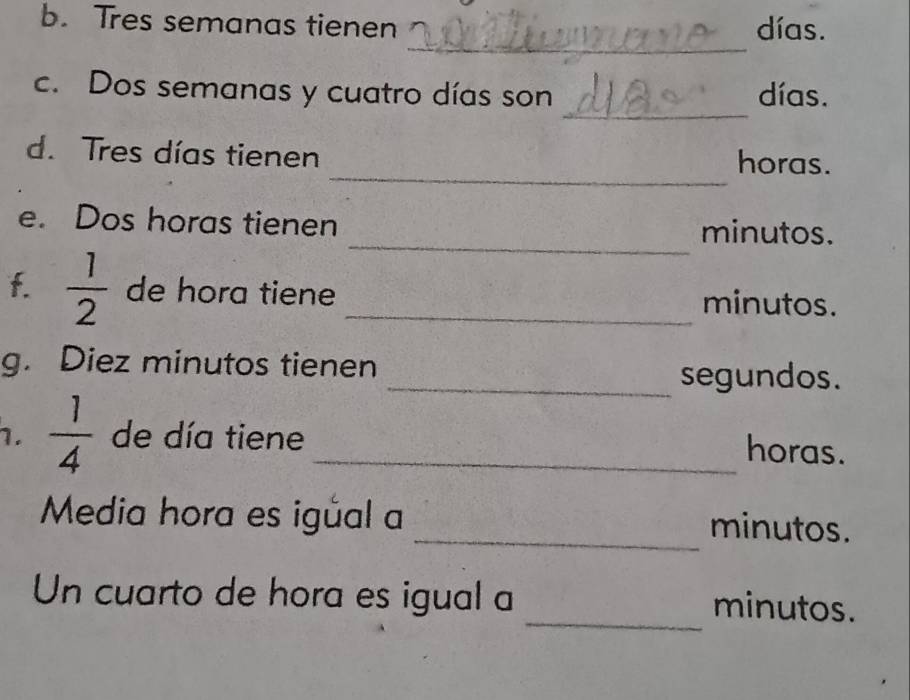 b. Tres semanas tienen ____ días.
c. Dos semanas y cuatro días son ____ días.
d. Tres días tienen ____ horas.
e. Dos horas tienen ____ minutos.
f. 1/2 de hora tiene ____ minutos.
g. Diez minutos tienen ____ segundos.
h. 1/4 de día tiene ____ horas.
Media hora es igual a ____ minutos.
Un cuarto de hora es igual a ____ minutos.